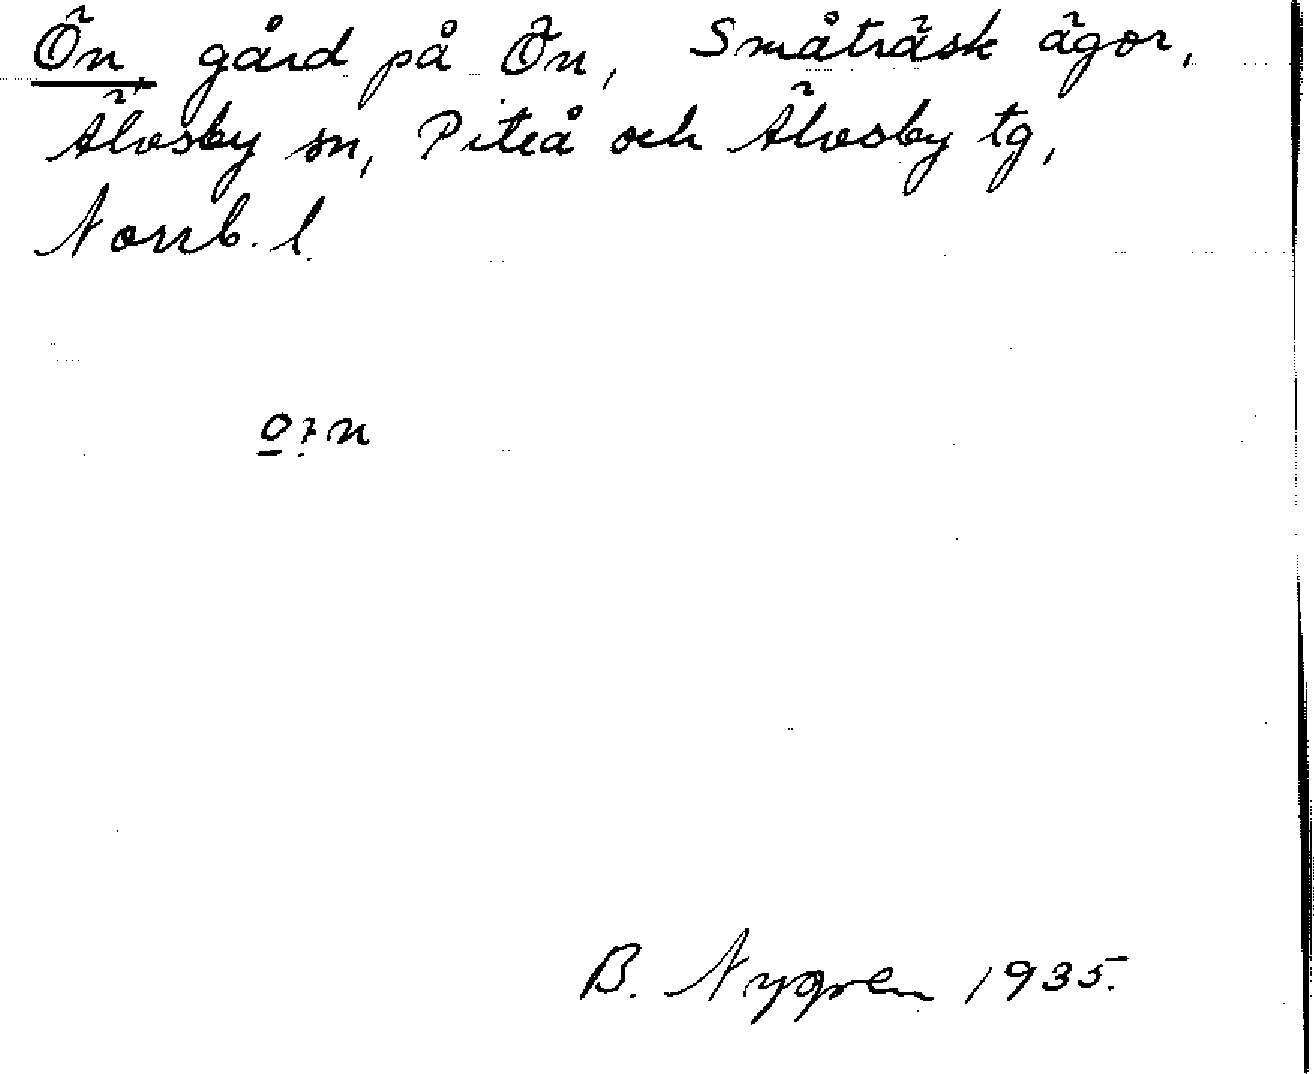 Ön gård på Ön, Småträsk ägor,
Älvsby sn, Piteå och Älvsby tg,
Norrb. l.
B. Nygren 1935.